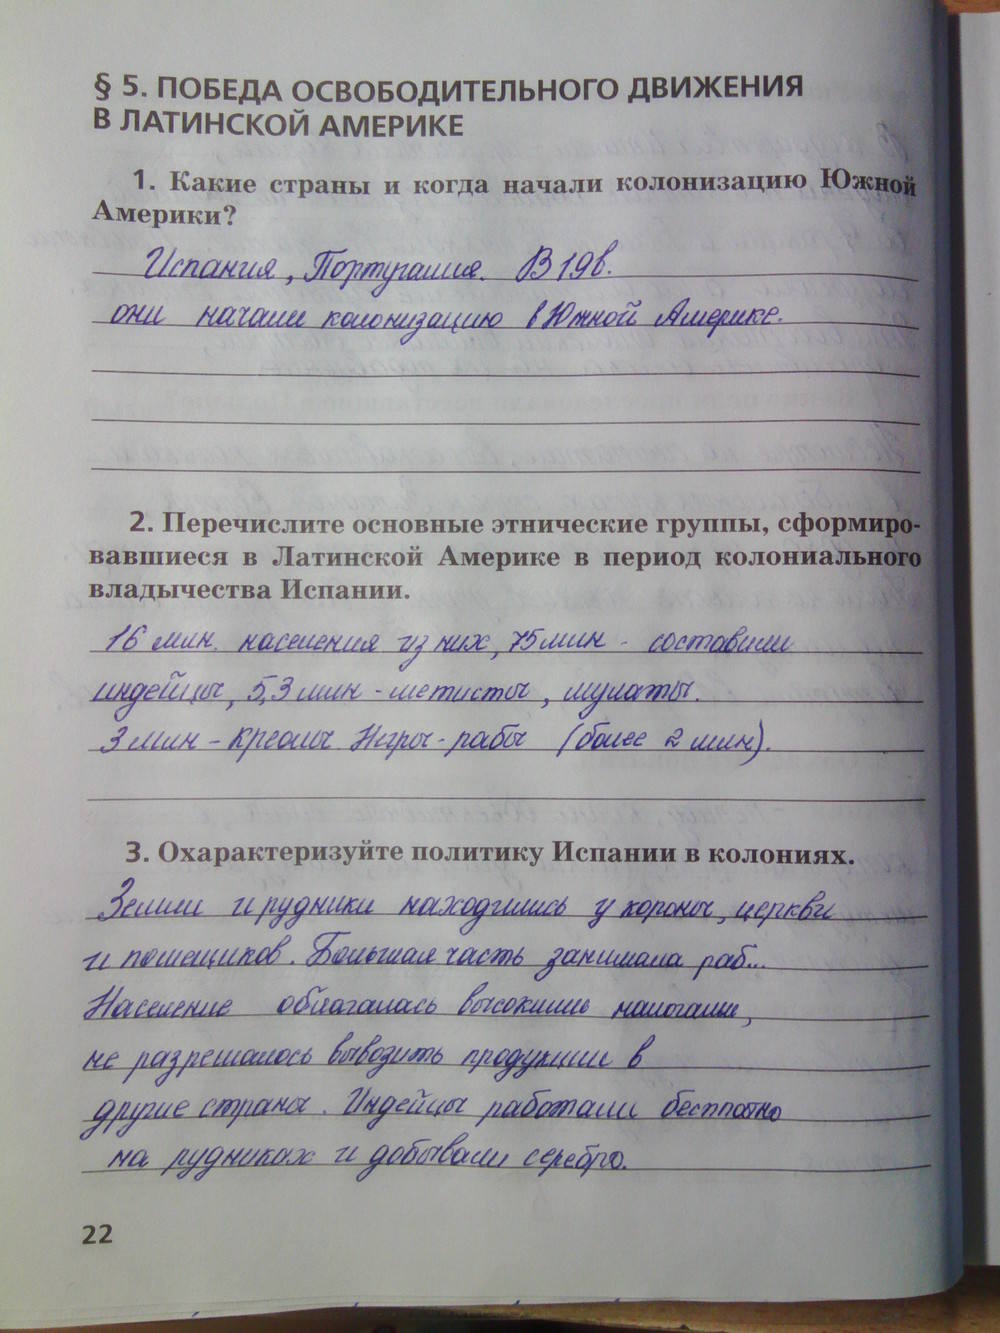 § 5. ПОБЕДА ОСВОБОДИТЕЛЬНОГО ДВИЖЕНИЯ
В ЛАТИНСКОЙ АМЕРИКЕ
1. Какие страны и когда начали колонизацию Южной
Америки?
Испания, Португалия. В 19в.
они начали колонизацию в Южной Америке.
2. Перечислите основные этнические группы, сформиро-
вавшиеся в Латинской Америке в период колониального
владычества Испании.
16 млн. населения из них, 75 млн - составили
индейцы, 5,3 млн - метисты, мулаты.
3 млн - креолы. Негры - рабы (более 2 млн).
3. Охарактеризуйте политику Испании в колониях.
Земли и рудники находились у короны, церкви
и помещиков. Большая часть занимала раб...
Население облагалась высокими налогами,
не разрешалось вывозить продукции в
другие страны. Индейцы работали бесплатно
на рудниках и добывали серебро.
22